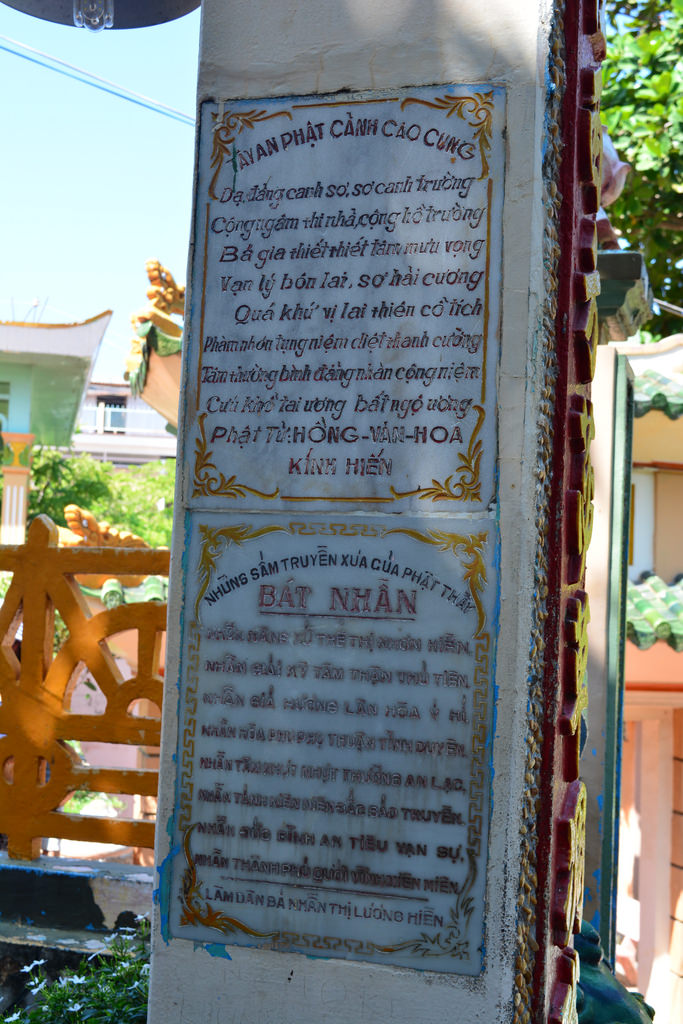 TÂY AN PHẬT CẢNH CÁO CUNG
Dạ, đẳng canh sơ, sơ canh trường
Cộng ngâm thi nhả, cộng hồ trường
Bá gia thiết thiết tâm mưu vọng
Vạn lý bôn lai, sơ hải cương
Quá khứ vị lai thiên cổ tích
Phàm nhơn tụng niệm diệt thanh cường
Tầm thường bình đẳng nhàn cộng niệm
Cứu khổ tai ương bất ngộ ương
Phật Tử: HỒNG-VĂN-HOÁ
KÍNH HIẾN
NHỮNG SẤM TRUYỀN XƯA CỦA PHẬT THẦY
BÁT NHẪN
NHẪN NĂNG XỬ THẾ THỊ NHƠN HIỀN,
NHẪN GIẢI KỲ TÂM THẬN THỦ TIÊN,
NHẪN GIẢ HƯƠNG LÂN HÒA Ý HỈ,
NHẪN HÒA PHU PHỤ THUẬN TÌNH DUYÊN,
NHẪN TÂM NHỰT NHỰT THƯỜNG AN LẠC,
NHẪN TÁNH NIÊN NIÊN ĐẮC BẢO TRUYỀN,
NHẪN ĐỨC BÌNH AN TIÊU VẠN SỰ,
NHẪN THÀNH PHÚ QUỚI VĨNH MIÊN MIÊN,
LÂM DÂN BÁ NHẪN THỊ LƯƠNG HIỀN